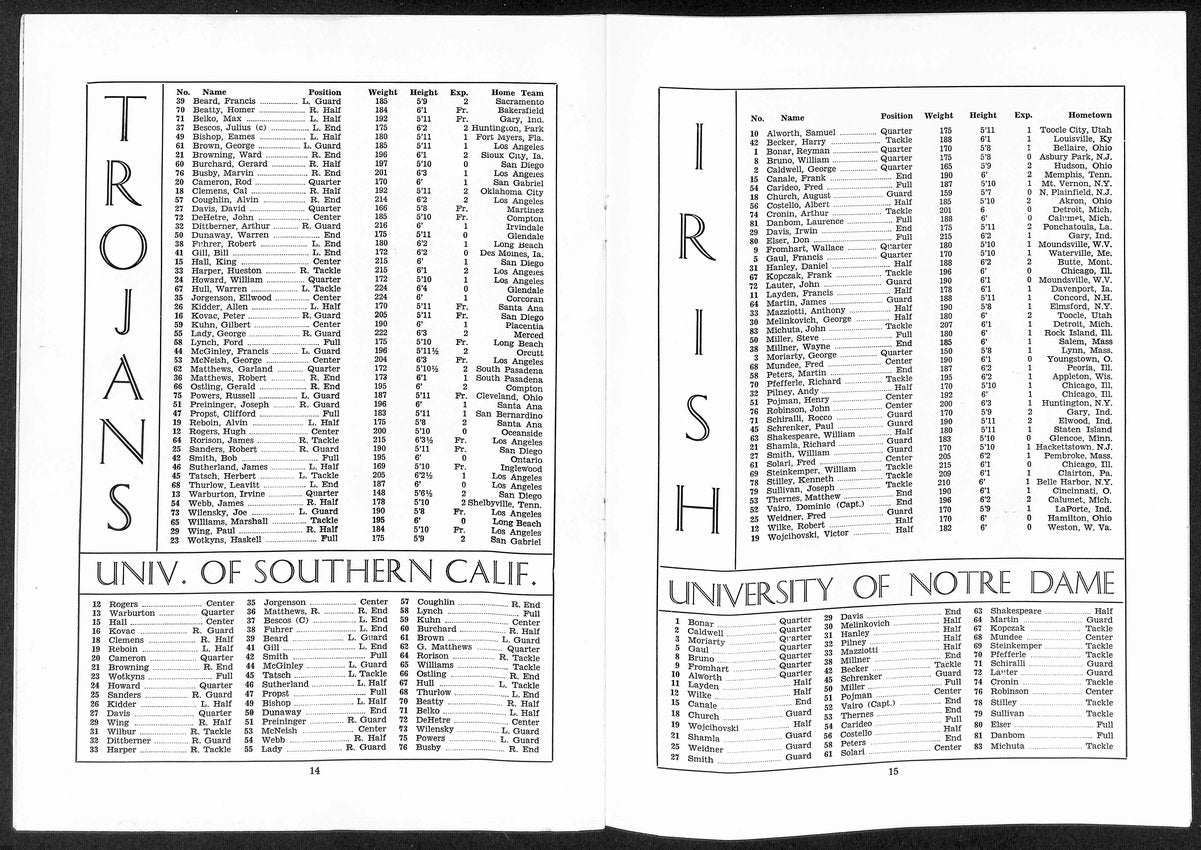 TROJANS
No. Name Position Weight Height Exp. Home Team
39 Beard, Francis L. Guard 185 5'9 2 Sacramento
70 Beatty, Homer R. Half 184 6'1 Fr. Bakersfield
71 Belko, Max L. Half 192 5'11 Fr. Gary, Ind.
37 Bescos, Julius (c) L. End 175 6'2 2 Huntington, Park
49 Bishop, Eames L. Half 180 5'11 1 Fort Myers, Fla.
61 Brown, George L. Guard 185 5'11 1 Los Angeles
21 Browning, Ward R. End 196 6'1 2 Sioux City, Ia.
60 Burchard, Gerard R. Half 197 5'10 0 San Diego
76 Busby, Marvin R. End 201 6'3 1 Los Angeles
20 Cameron, Rod Quarter 170 6' 1 San Gabriel
18 Clemens, Cal R. Half 192 5'11 2 Oklahoma City
57 Coughlin, Alvin R. End 214 6'2 2 Los Angeles
27 Davis, David Quarter 166 5'8 Fr. Martinez
72 DeHetre, John Center 185 5'10 Fr. Compton
32 Dittberner, Arthur R. Guard 216 6' 1 Irvindale
50 Dunaway, Warren End 175 5'11 0 Glendale
38 Fuhrer, Robert L. End 180 6'2 1 Long Beach
41 Gill, Bill L. End 172 6'2 0 Des Moines, Ia.
15 Hall, King Center 215 6' 1 San Diego
33 Harper, Hueston R. Tackle 215 6'1 2 Los Angeles
24 Howard, William Quarter 172 5'10 1 Los Angeles
67 Hull, Warren L. Tackle 224 6'4 0 Glendale
35 Jorgenson, Ellwood Center 224 6' 1 Corcoran
26 Kidder, Allen L. Half 170 5'11 Fr. Santa Ana
16 Kovac, Peter R. Guard 205 5'11 Fr. San Diego
59 Kuhn, Gilbert Center 190 6' 1 Placentia
55 Lady, George R. Guard 222 6'3 2 Merced
58 Lynch, Ford Full 175 5'10 Fr. Long Beach
44 McGinley, Francis L. Guard 196 5'11½ 2 Orcutt
53 McNeish, George Center 204 6'3 Fr. Los Angeles
62 Matthews, Garland Quarter 172 5'10½ 2 South Pasadena
36 Matthews, Robert R. End 173 6'1 1 South Pasadena
66 Ostling, Gerald R. End 195 6' 2 Compton
75 Powers, Russell L. Guard 187 5'11 Fr. Cleveland, Ohio
51 Preininger, Joseph R. Guard 196 6' 1 Santa Ana
47 Propst, Clifford Full 183 5'11 1 San Bernardino
19 Reboin, Alvin L. Half 175 5'8 2 Santa Ana
12 Rogers, Hugh Center 200 5'10 0 Oceanside
64 Rorison, James R. Tackle 215 6'3½ Fr. Los Angeles
25 Sanders, Robert R. Guard 190 5'11 Fr. San Diego
42 Smith, Bob Full 195 6' 0 Ontario
46 Sutherland, James L. Half 169 5'10 Fr. Inglewood
45 Tatsch, Herbert L. Tackle 205 6'2½ 1 Los Angeles
68 Thurlow, Leavitt L. End 187 6' 0 Los Angeles
13 Warburton, Irvine Quarter 148 5'6½ 2 San Diego
54 Webb, James R. Half 178 5'10 2 Shelbyville, Tenn.
73 Wilensky, Joe L. Guard 190 5'8 Fr. Los Angeles
65 Williams, Marshall Tackle 195 6' 0 Long Beach
29 Wing, Paul R. Half 184 5'10 Fr. Los Angeles
23 Wotkyns, Haskell Full 175 5'9 2 San Gabriel
UNIV. OF SOUTHERN CALIF.
12 Rogers Center 35 Jorgenson Center 57 Coughlin R. End
13 Warburton Quarter 36 Matthews, R. R. End 58 Lynch Full
15 Hall Center 37 Bescos (C) L. End 59 Kuhn Center
16 Kovac R. Guard 38 Fuhrer L. End 60 Burchard R. Half
18 Clemens R. Half 39 Beard L. Guard 61 Brown L. Guard
19 Reboin L. Half 41 Gill L. End 62 G. Matthews Quarter
20 Cameron Quarter 42 Smith Full 64 Rorison R. Tackle
21 Browning R. End 44 McGinley L. Guard 65 Williams Tackle
23 Wotkyns Full 45 Tatsch L. Tackle 66 Ostling R. End
24 Howard Quarter 46 Sutherland L. Half 67 Hull L. Tackle
25 Sanders R. Guard 47 Propst Full 68 Thurlow L. End
26 Kidder L. Half 49 Bishop L. Half 70 Beatty R. Half
27 Davis Quarter 50 Dunaway End 71 Belko L. Half
29 Wing R. Half 51 Preininger R. Guard 72 DeHetre Center
31 Wilbur R. Tackle 53 McNeish Center 73 Wilensky L. Guard
32 Dittberner R. Guard 54 Webb R. Half 75 Powers L. Guard
33 Harper R. Tackle 55 Lady R. Guard 76 Busby R. End
14
IRISH
No. Name Position Weight Height Exp. Hometown
10 Alworth, Samuel Quarter 175 5'11 1 Toocle City, Utah
42 Becker, Harry Tackle 188 6'1 1 Louisville, Ky
1 Bonar, Reyman Quarter 170 5'8 1 Bellaire, Ohio
8 Bruno, William Quarter 175 5'8 0 Asbury Park, N.J.
2 Caldwell, George Quarter 165 5'9 2 Hudson, Ohio
15 Canale, Frank End 190 6' 2 Memphis, Tenn.
54 Carideo, Fred Full 187 5'10 1 Mt. Vernon, N.Y.
18 Church, August Guard 159 5'7 0 N. Plainfield, N.J.
56 Costello, Albert Half 185 5'10 2 Akron, Ohio
74 Cronin, Arthur Tackle 201 6 0 Detroit, Mich.
81 Danbom, Laurence Full 188 6' 0 Calumet, Mich.
29 Davis, Irwin End 175 5'11 2 Ponchatoula, La.
80 Elser, Don Full 215 6'2 1 Gary, Ind.
9 Fromhart, Wallace Quarter 180 5'10 1 Moundsville, W.V.
5 Gaul, Francis Quarter 170 5'10 1 Waterville, Me.
31 Hanley, Daniel Half 188 6'2 2 Butte, Mont.
67 Kopczak, Frank Tackle 196 6' 0 Chicago, Ill.
72 Lauter, John Guard 190 6'1 0 Moundsville, W.V.
11 Layden, Francis Half 178 6'1 1 Davenport, Ia.
64 Martin, James Guard 188 5'11 1 Concord, N.H.
33 Mazziotti, Anthony Half 190 5'8 1 Elmsford, N.Y.
30 Melinkovich, George Half 180 6' 2 Toocle, Utah
83 Michuta, John Tackle 207 6'1 1 Detroit, Mich.
50 Miller, Steve Full 180 6' 1 Rock Island, Ill.
38 Millner, Wayne End 185 6' 1 Salem, Mass
3 Moriarty, George Quarter 150 5'8 1 Lynn, Mass.
68 Mundee, Fred Center 190 6'1 0 Youngstown, O.
58 Peters, Martin End 187 6'2 1 Peoria, Ill.
70 Pfefferle, Richard Tackle 195 6'2 1 Appleton, Wis.
32 Pilney, Andy Half 170 5'10 1 Chicago, Ill.
51 Pojman, Henry Center 192 6' 1 Chicago, Ill.
76 Robinson, John Center 200 6'3 1 Huntington, N.Y.
71 Schiralli, Rocco Guard 170 5'9 2 Gary, Ind.
45 Schrenker, Paul Guard 190 5'11 2 Elwood, Ind.
63 Shakespeare, William Half 180 5'11 1 Staten Island
21 Shamla, Richard Guard 183 5'10 0 Glencoe, Minn.
27 Smith, William Guard 170 5'10 1 Hackettstown, N.J.
61 Solari, Fred Center 205 6'2 1 Pembroke, Mass.
69 Steinkemper, William Tackle 215 6'1 0 Chicago, Ill.
78 Stilley, Kenneth Tackle 209 6'1 1 Clairton, Pa.
79 Sullivan, Joseph Tackle 210 6' 1 Belle Harbor, N.Y.
53 Thernes, Matthew End 190 6'1 0 Cincinnati, O.
52 Vairo, Dominic (Capt.) End 196 6'2 2 Calumet, Mich.
25 Weidner, Fred Guard 170 5'9 1 LaPorte, Ind.
12 Wilke, Robert Half 170 6' 0 Hamilton, Ohio
19 Wojcihovski, Victor Half 182 6' 0 Weston, W. Va.
UNIVERSITY OF NOTRE DAME
1 Bonar Quarter 29 Davis End 63 Shakespeare Half
2 Caldwell Quarter 30 Melinkovich Half 64 Martin Guard
3 Moriarty Quarter 31 Hanley Half 67 Kopczak Tackle
5 Gaul Quarter 32 Pilney Half 68 Mundee Center
8 Bruno Quarter 33 Mazziotti Half 69 Steinkemper Tackle
9 Fromhart Quarter 38 Millner End 70 Pfefferle Tackle
10 Alworth Quarter 42 Becker Tackle 71 Schiralli Guard
11 Layden Half 45 Schrenker Guard 72 Lauter Guard
12 Wilke Half 50 Miller Full 74 Cronin Tackle
15 Canale End 51 Pojman Center 76 Robinson Center
18 Church Guard 52 Vairo (Capt.) End 78 Stilley Tackle
19 Wojcihovski Half 53 Thernes End 79 Sullivan Tackle
21 Shamla Guard 54 Carideo Full 80 Elser Full
25 Weidner Guard 56 Costello Half 81 Danbom Full
27 Smith Guard 58 Peters End 83 Michuta Tackle
61 Solari Center
15